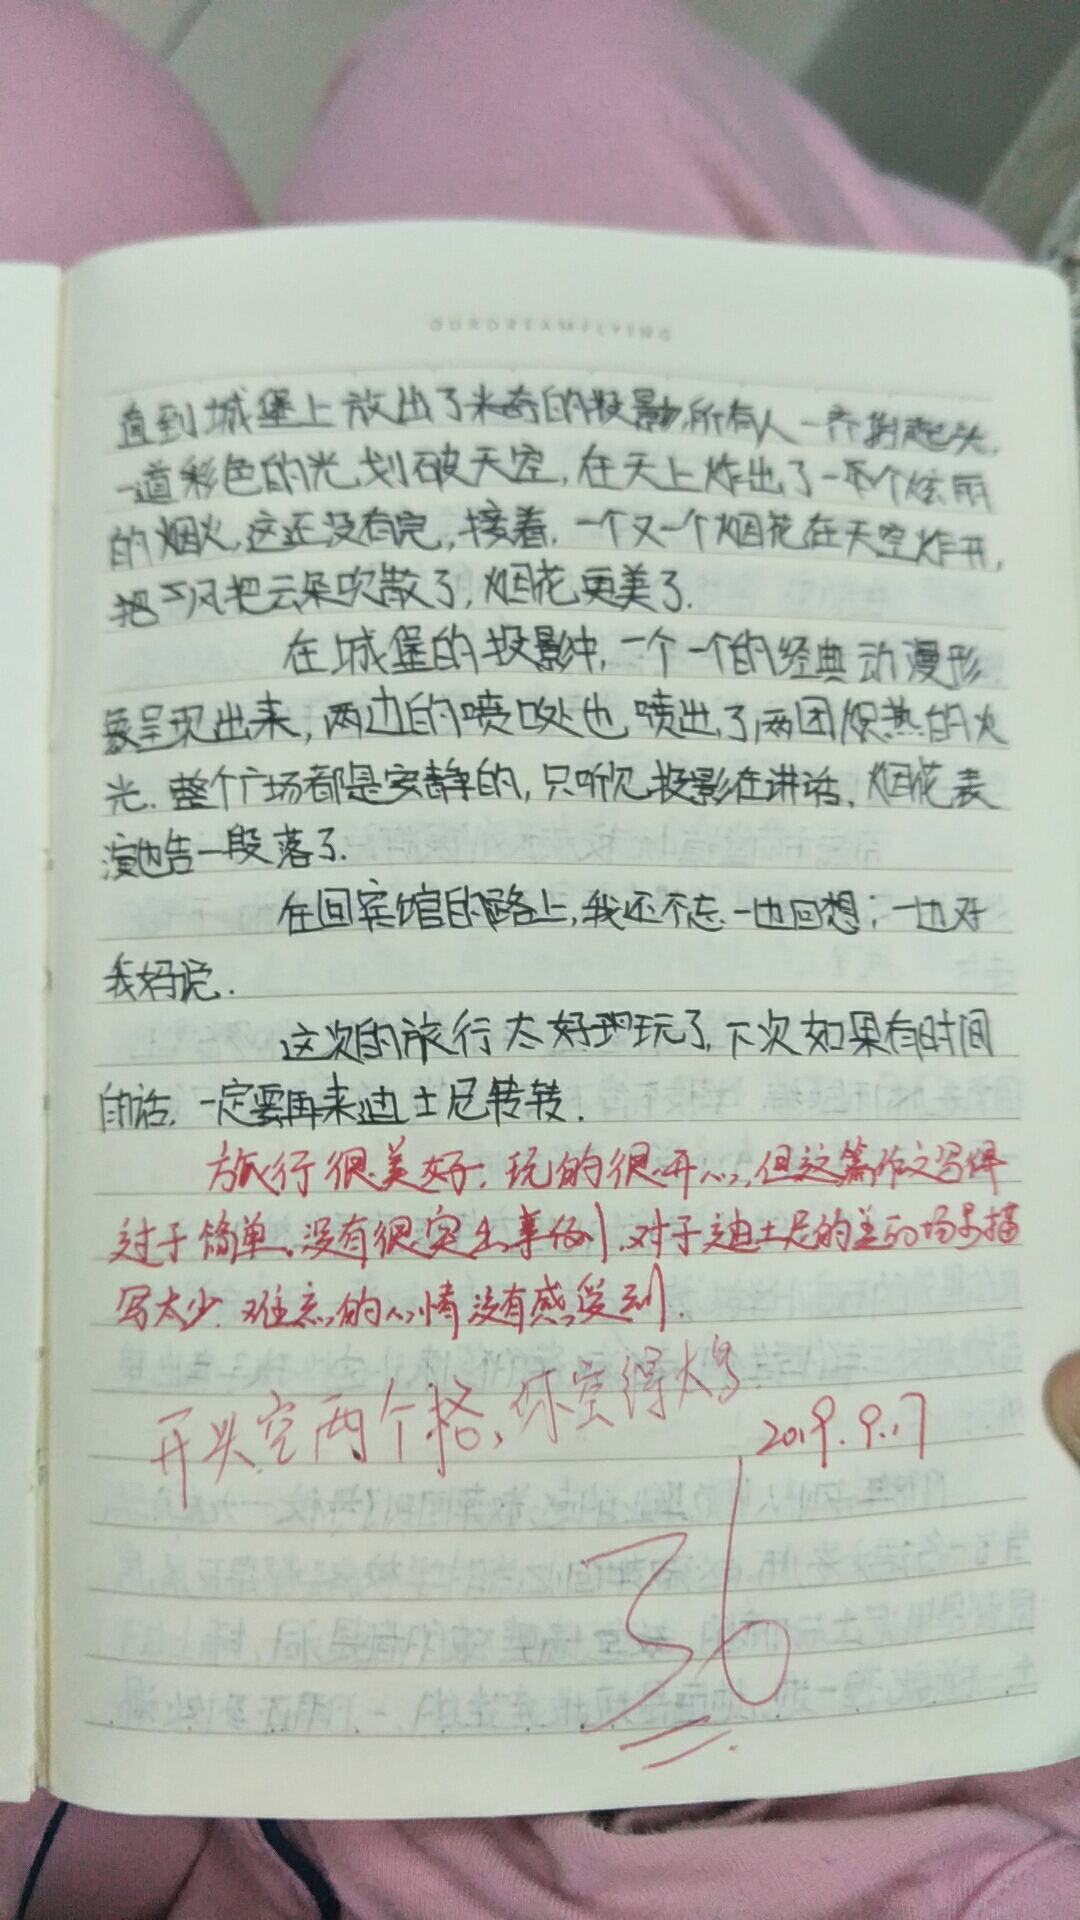 OURDREAMFLYING
直到城堡上放出了米奇的投影,所有人一齐抬起头,
一道彩色的光划破天空,在天上炸出了一个炫丽
的烟火,这还没有完,接着,一个又一个烟花在天空炸开,
把云朵吹散了,烟花更美了.
在城堡的投影中,一个一个的经典动漫形
象呈现出来,两边的喷口处也喷出了两团炽热的火
光.整个广场都是安静的,只听见投影在讲话,烟花表
演也告一段落了.
在回宾馆的路上,我还不忘一边回想;一边对
我妈说.
这次的旅行太好玩了,下次如果有时间
的话,一定要再来迪士尼转转.
旅行很美好,玩的很开心,但这篇作文写得
过于简单,没有很突出事例,对于迪士尼的美丽场景描
写太少.难忘的心情没有感受到.
开头空两个格,你空得太多
2019.9.17
36